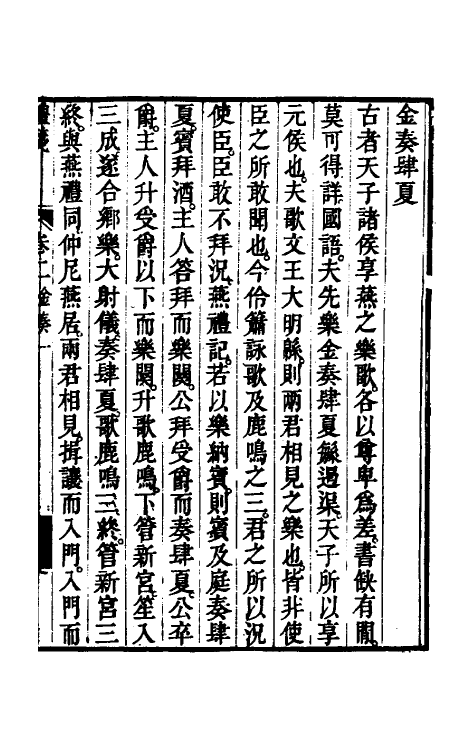 金奏肆夏
古者天子諸侯享燕之樂歌各以尊卑爲差書缺有閒
莫可得詳國語夫先樂金奏肆夏繇遏渠天子所以享
元侯也夫歌文王大明緜則兩君相見之樂也皆非使
臣之所敢聞也今伶簫詠歌及鹿鳴之三君之所以況
使臣臣敢不拜況燕禮記若以樂納賓則賓及庭奏肆
夏賓拜酒主人答拜而樂闋公拜受爵而奏肆夏公卒
爵主人升受爵以下而樂闋升歌鹿鳴下管新宮笙入
三成遂合鄉樂大射儀奏肆夏歌鹿鳴三終管新宮三
終與燕禮同仲尼燕居兩君相見揖讓而入門入門而
禮箋 卷二金奏 一